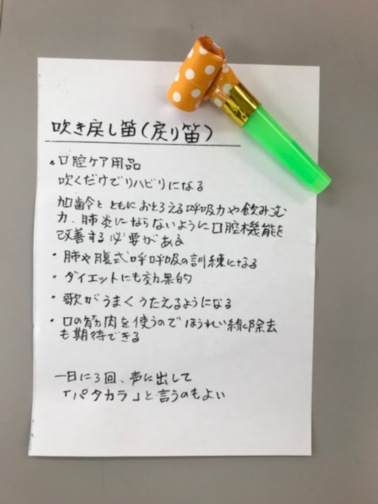 吹き戻し笛(戻り笛)
・口腔ケア用品
吹くだけでリハビリになる
加齢とともにおとろえる呼吸力や飲みこむ
力、肺炎にならないように口腔機能を
改善する必要がある
・肺や腹式呼呼吸の訓練になる
・ダイエットにも効果的
・歌がうまくうたえるようになる
・口の筋肉を使うのでほうれい線除去
も期待できる
一日に3回、声に出して
「パタカラ」と言うのもよい